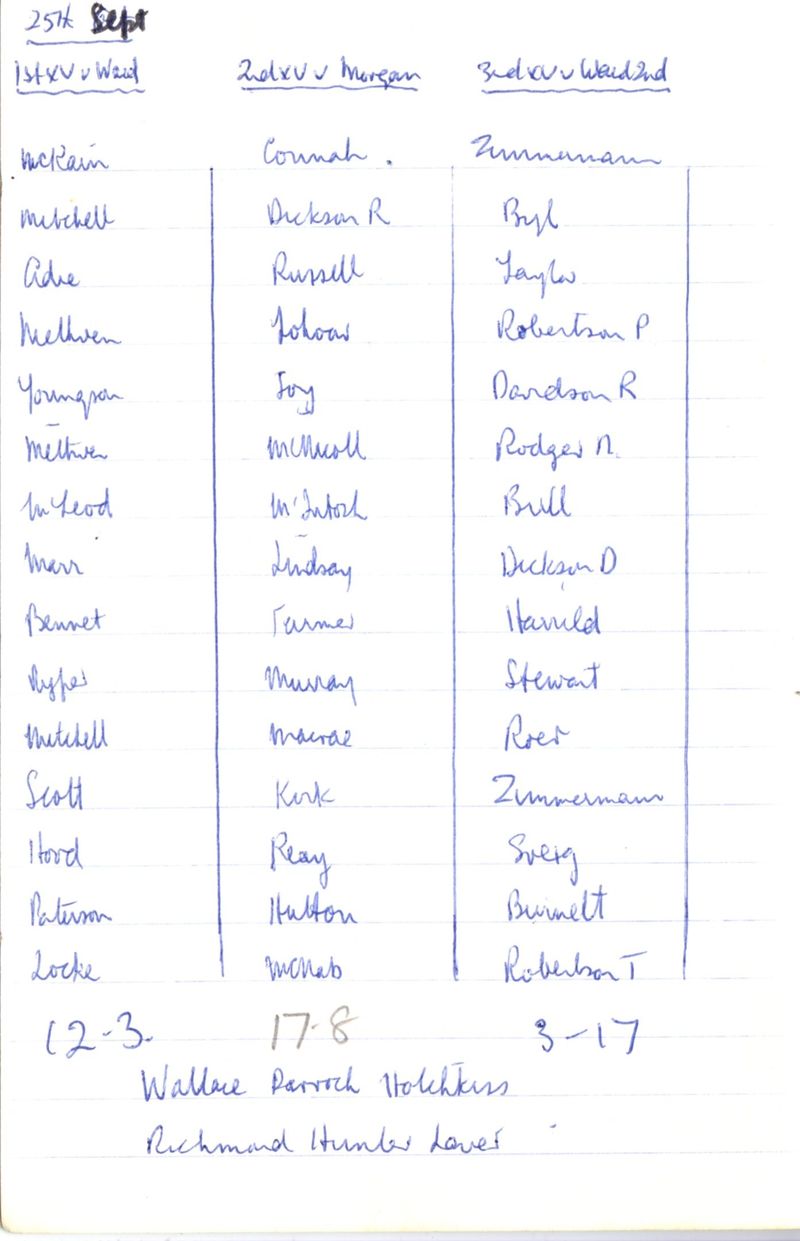 25th Sept
1st XV v Waid 2nd XV v Morgan 3rd XV v Waid 2nd
McKain Connah . Zimmermann
Mitchell Dickson R Byl
Adie Russell Taylor
Methven Johoar Robertson P
Youngson Joy Davidson R
Methven McNicoll Rodger N.
McLeod McIntosh Bull
Marr Lindsay Dickson D
Bennet Farmer Harrild
Ryper Murray Stewart
Mitchell Macrae Roer
Scott Kirk Zimmermann
Hood Reay
Paterson Hutton Burnett
Locke McNab Robertson T
12-3. 17-8 3-17
Wallace Darroch Hotchkiss
Richmond Hunter Laver